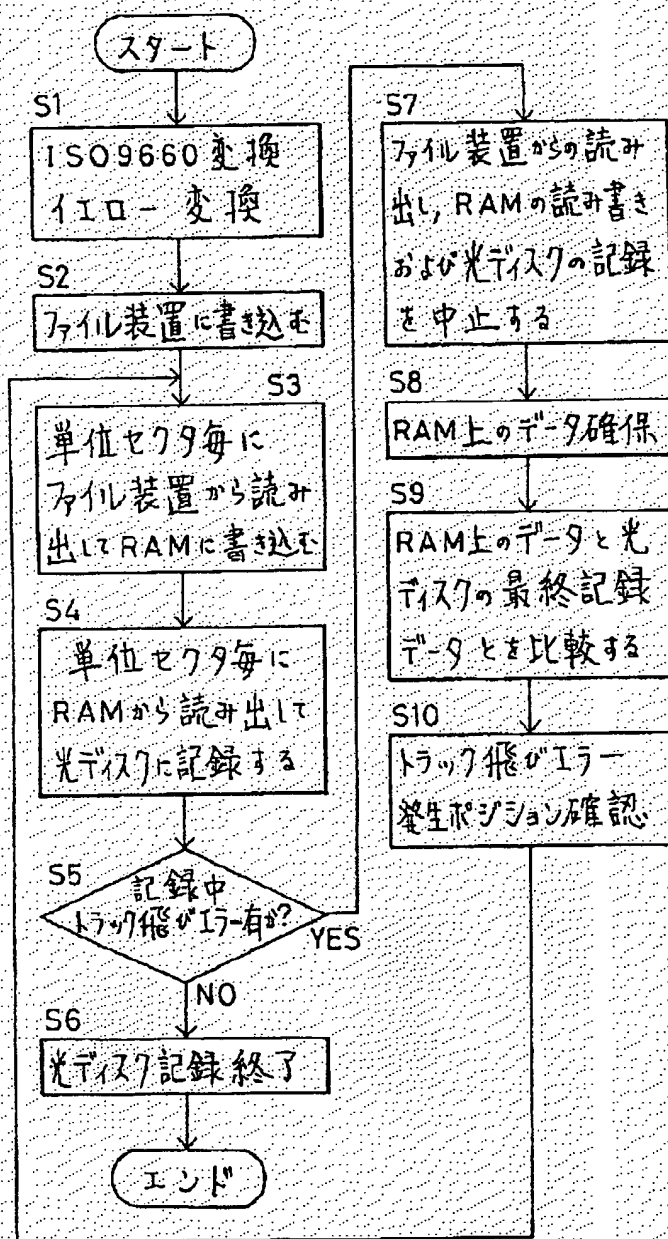 スタート
S1
ISO9660変換
イエロー変換
S2
ファイル装置に書き込む
S3
単位セクタ毎に
ファイル装置から読み
出してRAMに書き込む
S4
単位セクタ毎に
RAMから読み出して
光ディスクに記録する
S5
記録中
トラック飛びエラー有か?
YES
NO
S6
光ディスク記録終了
エンド
S7
ファイル装置からの読み
出し,RAMの読み書き
および光ディスクの記録
を中止する
S8
RAM上のデータ確保
S9
RAM上のデータと光
ディスクの最終記録
データとを比較する
S10
トラック飛びエラー
発生ポジション確認